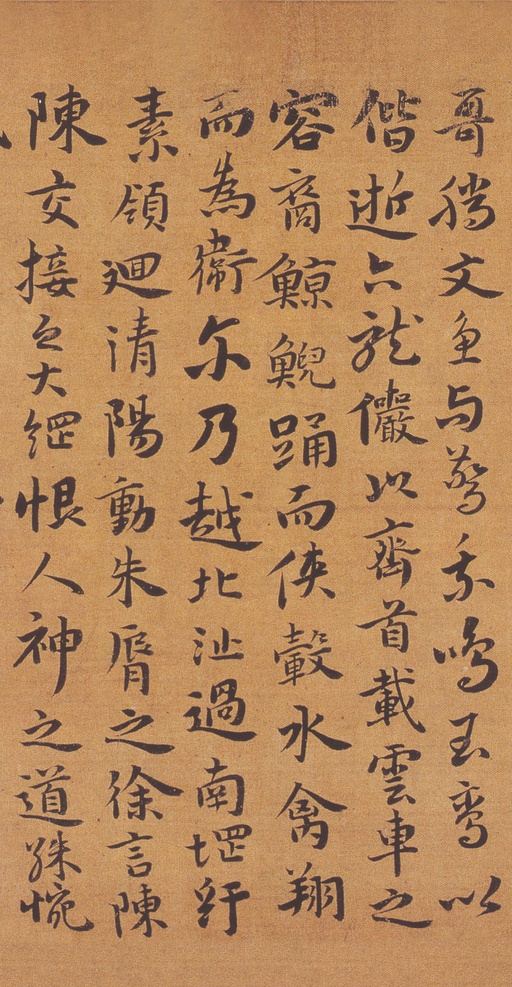 哥騰文魚与警乘鳴玉鸾以
偕逝六龍儼以齊首載雲車之
容裔鯨鯢踊而俠轂水禽翔
而為衛尓乃越北沚過南堽紆
素領迴清陽動朱脣之徐言陳
陳交接之大綱恨人神之道殊惋